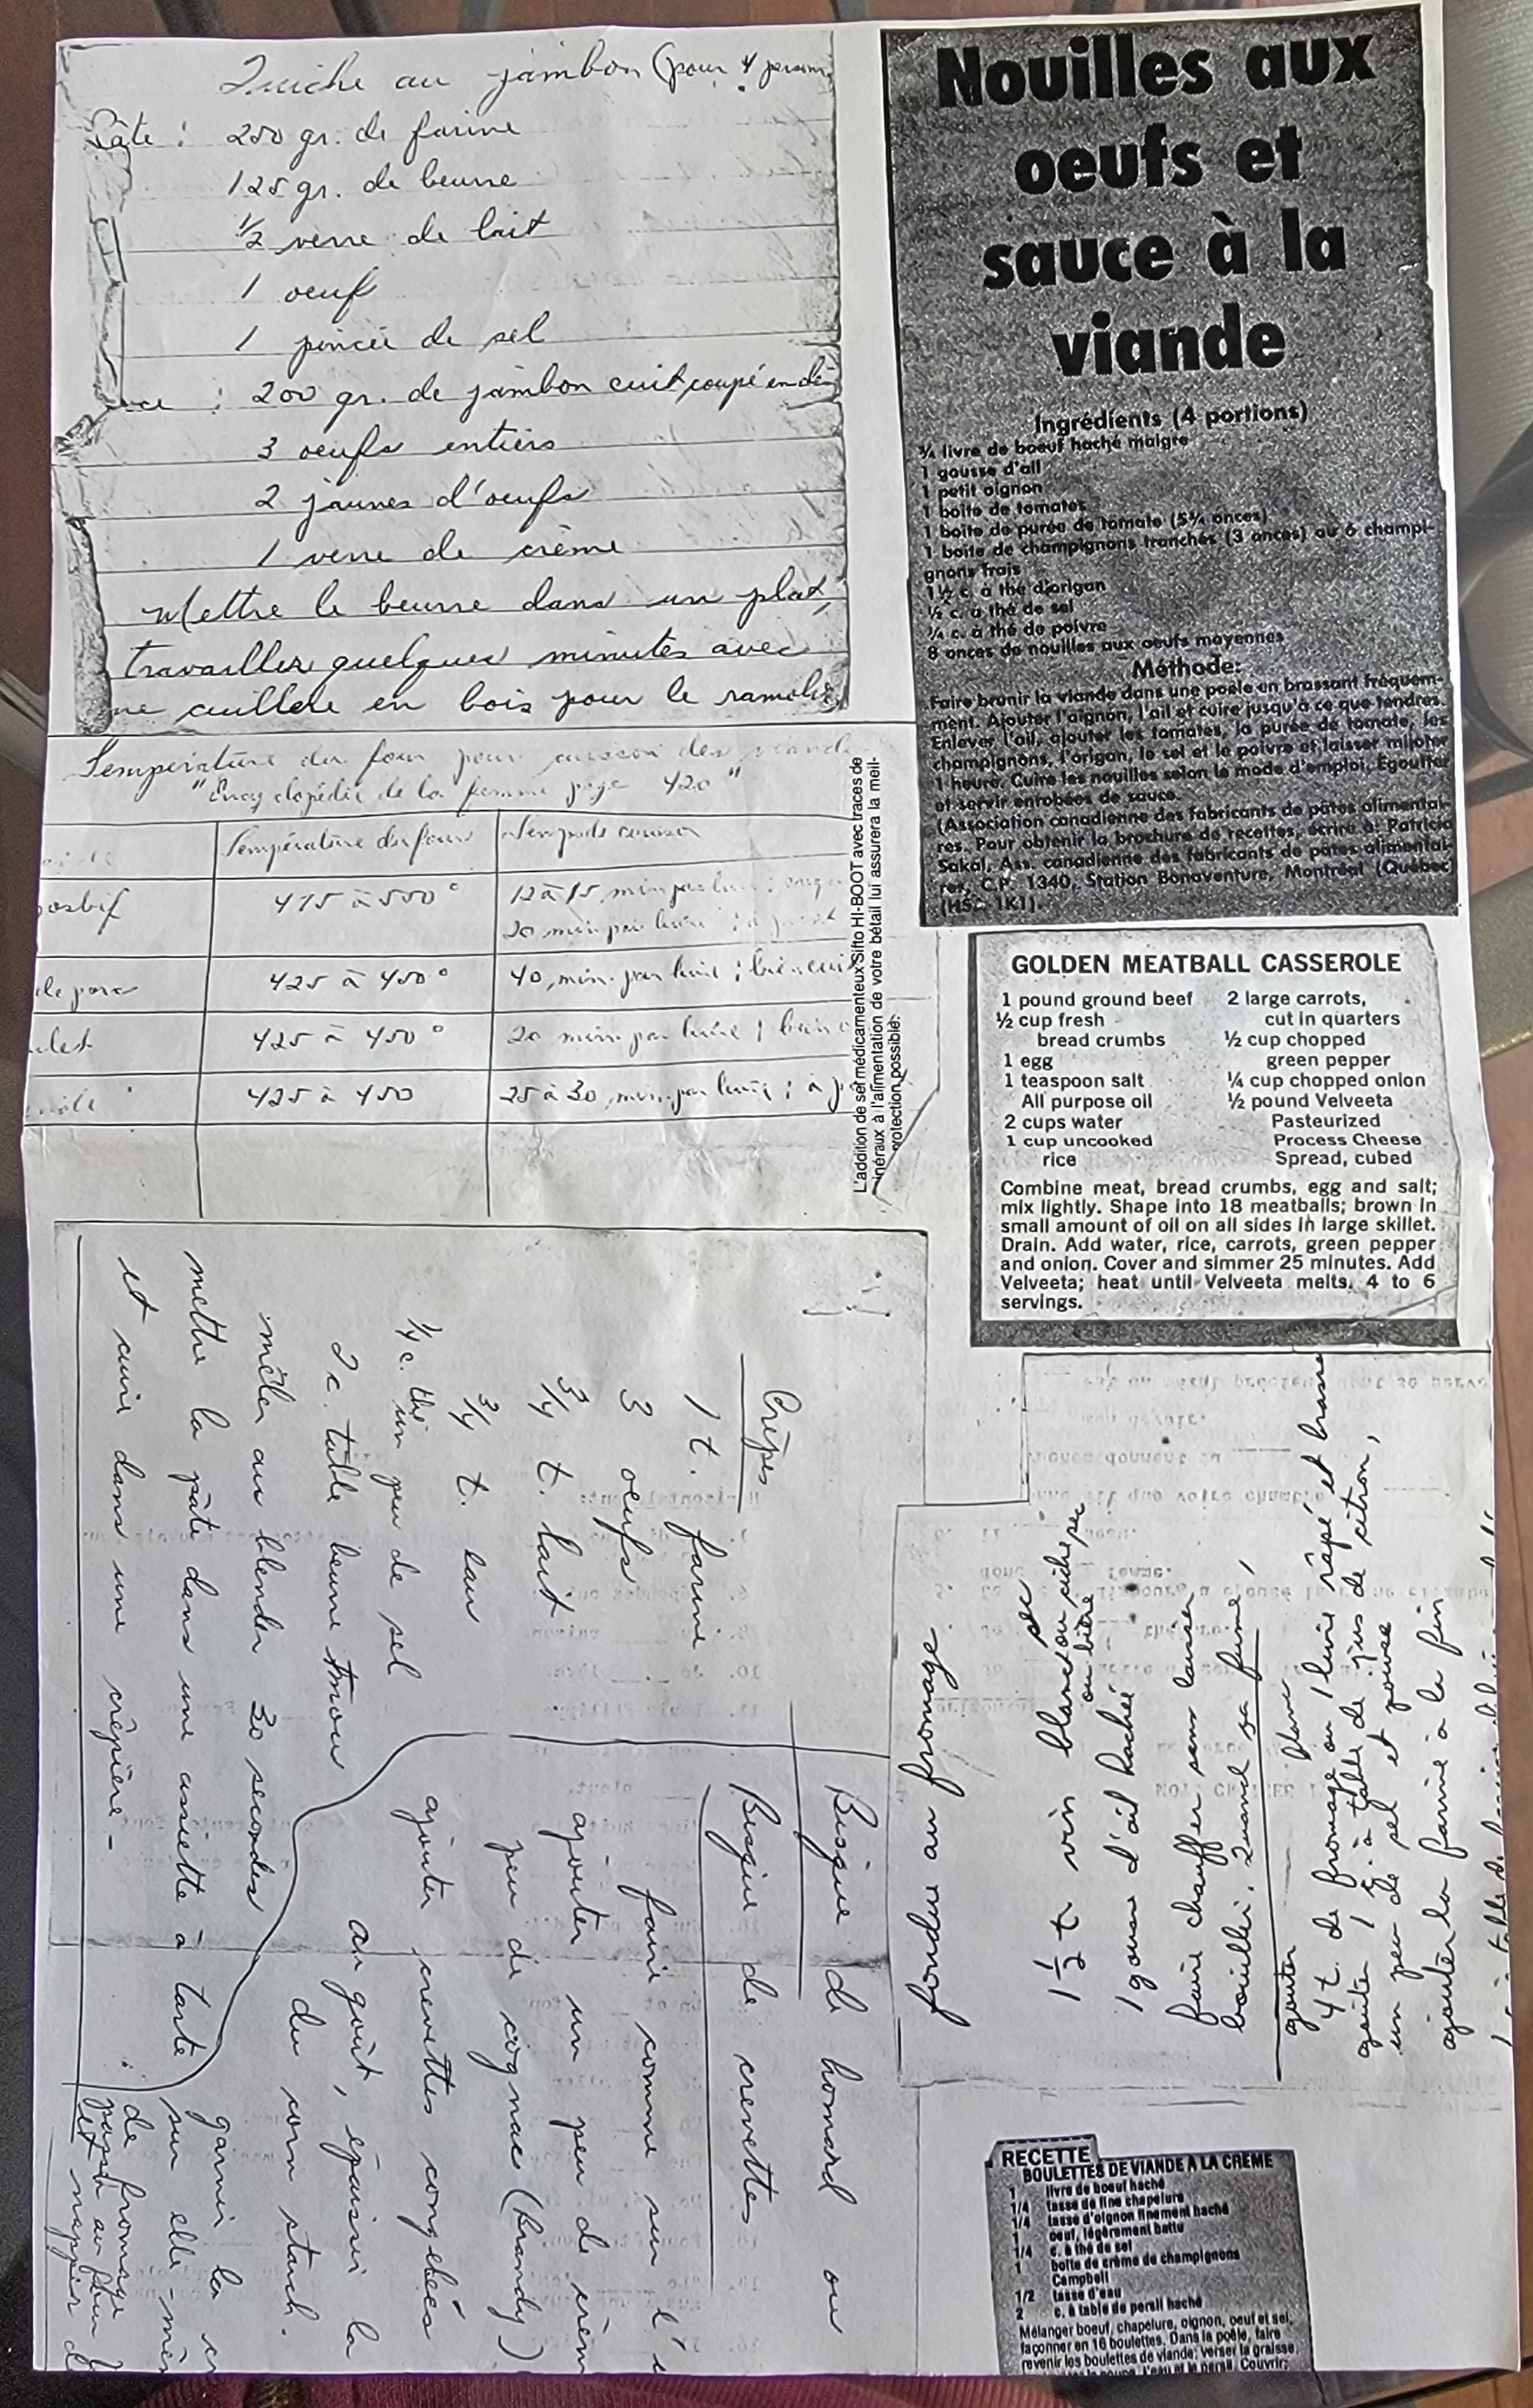 Quiche au jambon (pour 4
Pâte : 250 gr. de farine
125 gr. de beurre
1/2 verre de lait
1 oeuf
1 pincée de sel
200 gr. de jambon cuit, coupé en dés
3 oeufs entiers
2 jaunes d'oeufs
1 verre de crème
Mettre le beurre dans un plat,
travailler quelques minutes avec
cuillère en bois pour le
Température du four pour cuisson des viandes
"Encyclopédie de la femme page 420"
Température du four
Temps de cuisson
osbif
475 à 500°
12 à 15 min par livre :
20 min par livre : à
de porc
425 à 450°
40 min. par livre ; bien cuit
ulet
425 à 450°
20 min par livre ; bien
425 à 450
25 à 30 min. par livre ; à
L'addition de sel médicamenteux Sifto HI-BOOT avec traces de
inéraux à l'alimentation de votre bétail lui assurera la meil-
protection possible.
Nouilles aux
oeufs et
sauce à la
viande
Ingrédients (4 portions)
¾ livre de boeuf haché maigre
1 gousse d'ail
1 petit oignon
1 boîte de tomates
1 boîte de purée de tomate (5¾ onces)
1 boîte de champignons tranchés (3 onces) ou 6 champi-
gnons frais
1½ c. à thé d'origan
½ c. à thé de sel
¼ c. à thé de poivre
8 onces de nouilles aux oeufs moyennes
Méthode:
Faire brunir la viande dans une poêle en brassant fréquem-
ment. Ajouter l'oignon, l'ail et cuire jusqu'à ce que tendres.
Enlever l'ail, ajouter les tomates, la purée de tomate, les
champignons, l'origan, le sel et le poivre et laisser mijoter
1 heure. Cuire les nouilles selon le mode d'emploi. Egoutter
et servir enrobées de sauce.
(Association canadienne des fabricants de pâtes alimentai-
res. Pour obtenir la brochure de recettes, écrire à: Patricia
Sakal, Ass. canadienne des fabricants de pâtes alimentai-
res, C.P. 1340, Station Bonaventure, Montréal (Québec)
1K1).
GOLDEN MEATBALL CASSEROLE
1 pound ground beef
½ cup fresh
bread crumbs
1 egg
1 teaspoon salt
All purpose oil
2 cups water
1 cup uncooked
rice
2 large carrots,
cut in quarters
½ cup chopped
green pepper
¼ cup chopped onion
½ pound Velveeta
Pasteurized
Process Cheese
Spread, cubed
Combine meat, bread crumbs, egg and salt;
mix lightly. Shape into 18 meatballs; brown in
small amount of oil on all sides in large skillet.
Drain. Add water, rice, carrots, green pepper
and onion. Cover and simmer 25 minutes. Add
Velveeta; heat until Velveeta melts. 4 to 6
servings.
Crêpes
1 t. farine
3 oeufs
3/4 t. lait
3/4 t. eau
1/4 c. thé un peu de sel
2 c. table beurre mou
mêler au blender 30 secondes
mettre la pâte dans une assiette à tarte
et cuire dans une crêpière -
Bisque de homard ou
Bisque de crevettes
faire comme sur l'
ajouter un peu de crème
peu de cognac (Brandy)
ajouter crevettes congelées
au goût, épaissir la
du corn starch.
garnir la
sur elle-même
de fromage
passer au four
et napper
fondue au fromage
1 1/2 t vin blanc sec
ou cidre sec
ou bière
1 gousse d'ail haché
faire chauffer sans laisser
bouillir. Quand ça fume,
ajouter
4 t. de fromage ou 1 livre râpé et brasser
ajouter 1 c. à table de jus de citron,
un peu de sel et poivre
ajouter la farine à la fin
RECETTE
BOULETTES DE VIANDE A LA CRÈME
1 livre de boeuf haché
1/4 tasse de fine chapelure
1/4 tasse d'oignon finement haché
1 oeuf, légèrement battu
1/4 c. à thé de sel
1 boîte de crème de champignons
Campbell
1/2 tasse d'eau
2 c. à table de persil haché
Mélanger boeuf, chapelure, oignon, oeuf et sel;
façonner en 16 boulettes. Dans la poêle, faire
revenir les boulettes de viande; verser la graisse.
la soupe, l'eau et le persil. Couvrir;